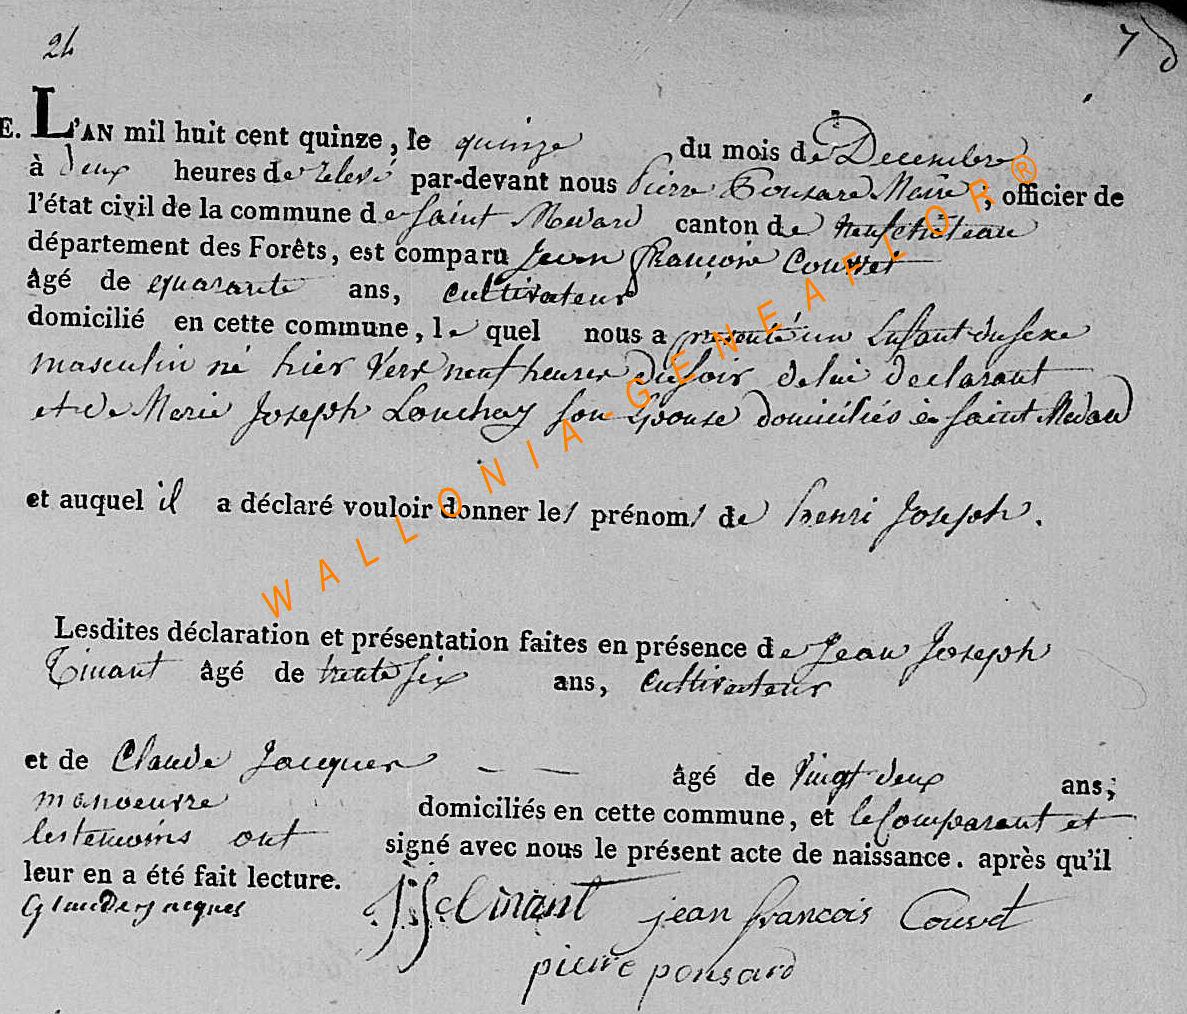 24
7
E. L'AN mil huit cent quinze, le quinze du mois de Decembre
à deux heures de relevé par-devant nous Pierre Ponsard Maire, officier de
l'état civil de la commune de Saint Medard canton de neufchateau
département des Forêts, est comparu Jean François Couvet
âgé de quarante ans, Cultivateur
domicilié en cette commune, le quel nous a presenté un Enfant du sexe
masculin né hier vers neuf heures du soir de lui declarant
et de Marie Joseph Louchay son Epouse domiciliés à Saint Medard
et auquel il a déclaré vouloir donner les prénoms de henri Joseph.
Lesdites déclaration et présentation faites en présence de Jean Joseph
Tinant âgé de trente six ans, Cultivateur
et de Claude Jacques — — âgé de vingt deux ans,
manoeuvre domiciliés en cette commune, et le Comparant et
les temoins ont signé avec nous le présent acte de naissance. après qu'il
leur en a été fait lecture.
Glaude jacques J J Tinant jean francois Couvet
pierre ponsard
WALLONIA-GENEAFLOR®